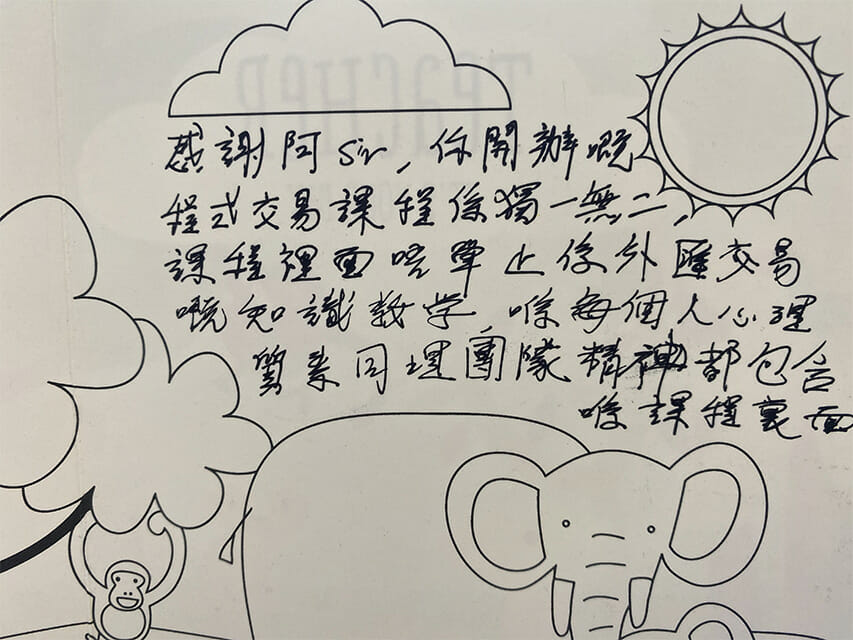 感謝阿Sir, 你開辦嘅
程式交易課程係獨一無二,
課程裡面唔單止係外匯交易
嘅知識教学, 喺每個人心理
質素同埋團隊精神都包含
喺課程裏面
TEACHER